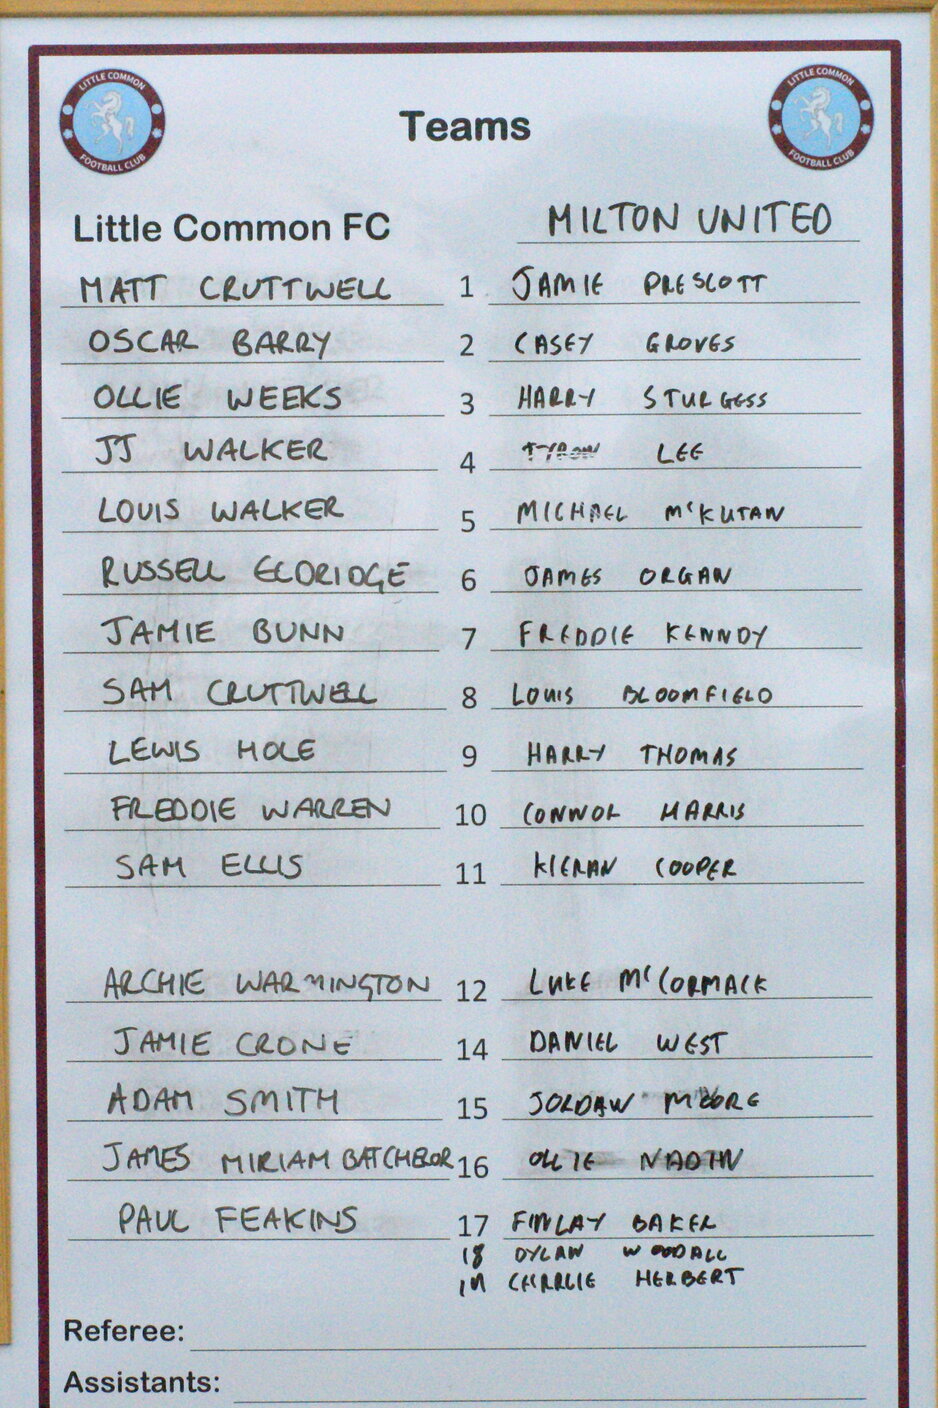 LITTLE COMMON FOOTBALL CLUB
LITTLE COMMON FOOTBALL CLUB
Teams
Little Common FC MILTON UNITED
MATT CRUTTWELL 1 JAMIE PRESCOTT
OSCAR BARRY 2 CASEY GROVES
OLLIE WEEKS 3 HARRY STURGESS
JJ WALKER 4 TYRON LEE
LOUIS WALKER 5 MICHAEL McKUTAN
RUSSELL ELDRIDGE 6 JAMES ORGAN
JAMIE BUNN 7 FREDDIE KENNDY
SAM CRUTTWELL 8 LOUIS BLOOMFIELD
LEWIS HOLE 9 HARRY THOMAS
FREDDIE WARREN 10 CONNOR HARRIS
SAM ELLIS 11 KIERAN COOPER
ARCHIE WARMINGTON 12 LUKE McCORMACK
JAMIE CRONE 14 DANIEL WEST
ADAM SMITH 15 JORDAN MOORE
JAMES MIRIAM BATCHELOR 16 OLLIE
PAUL FEAKINS 17 FINLAY BAKER
18 DYLAN WOODALL
19 CHARLIE HERBERT
Referee:
Assistants: